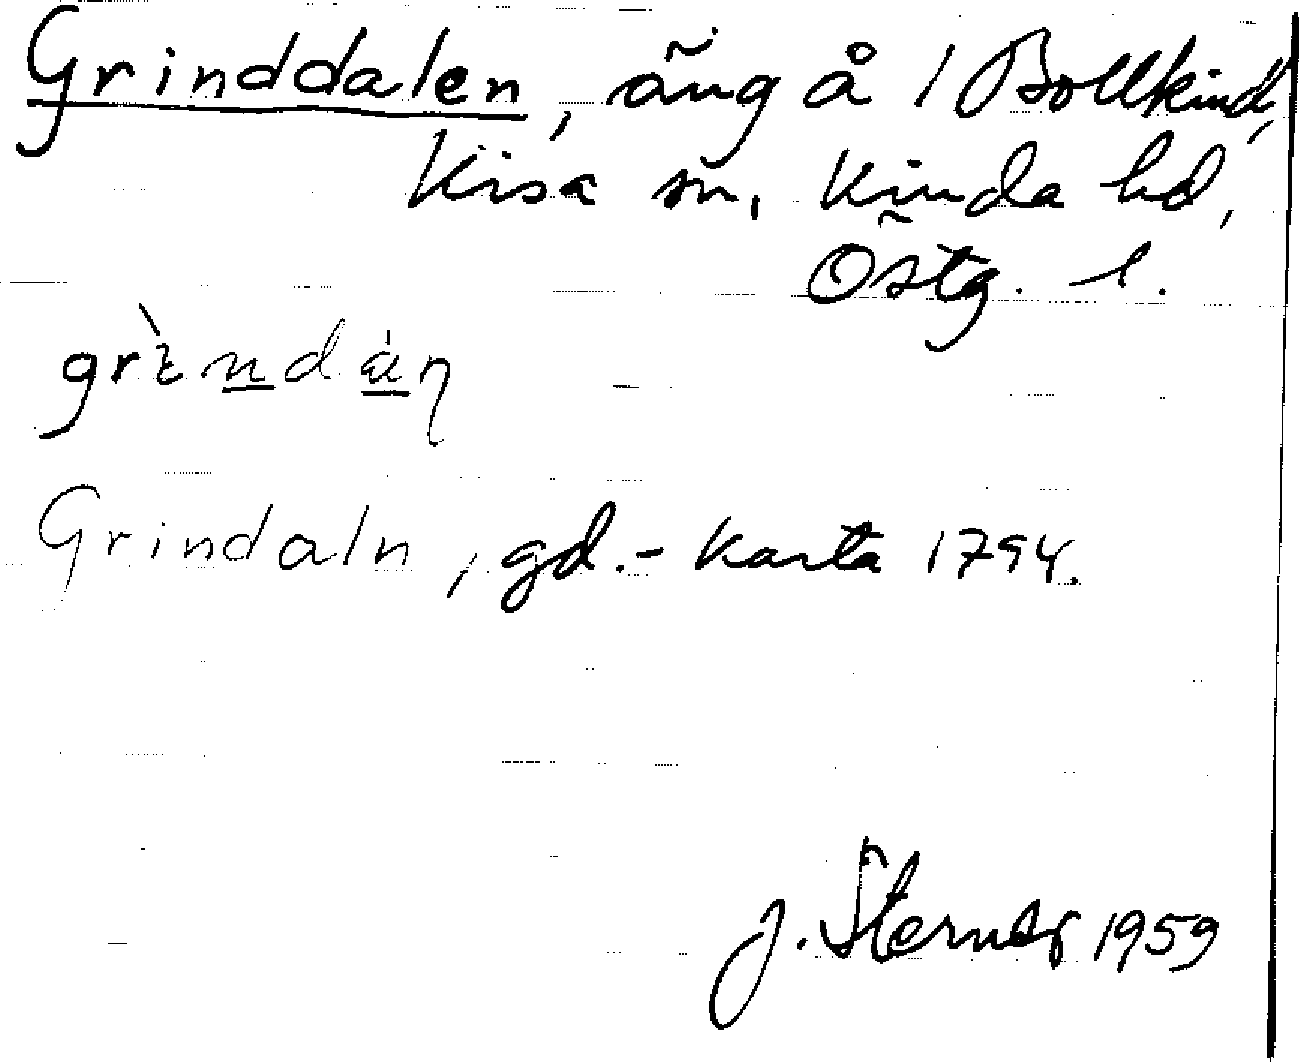 Grinddalen, äng å 1 Bollkind,
Kisa sn, Kinda hd,
Östg. l.
Grindaln, gd.-karta 1794.
J. Sterner 1959